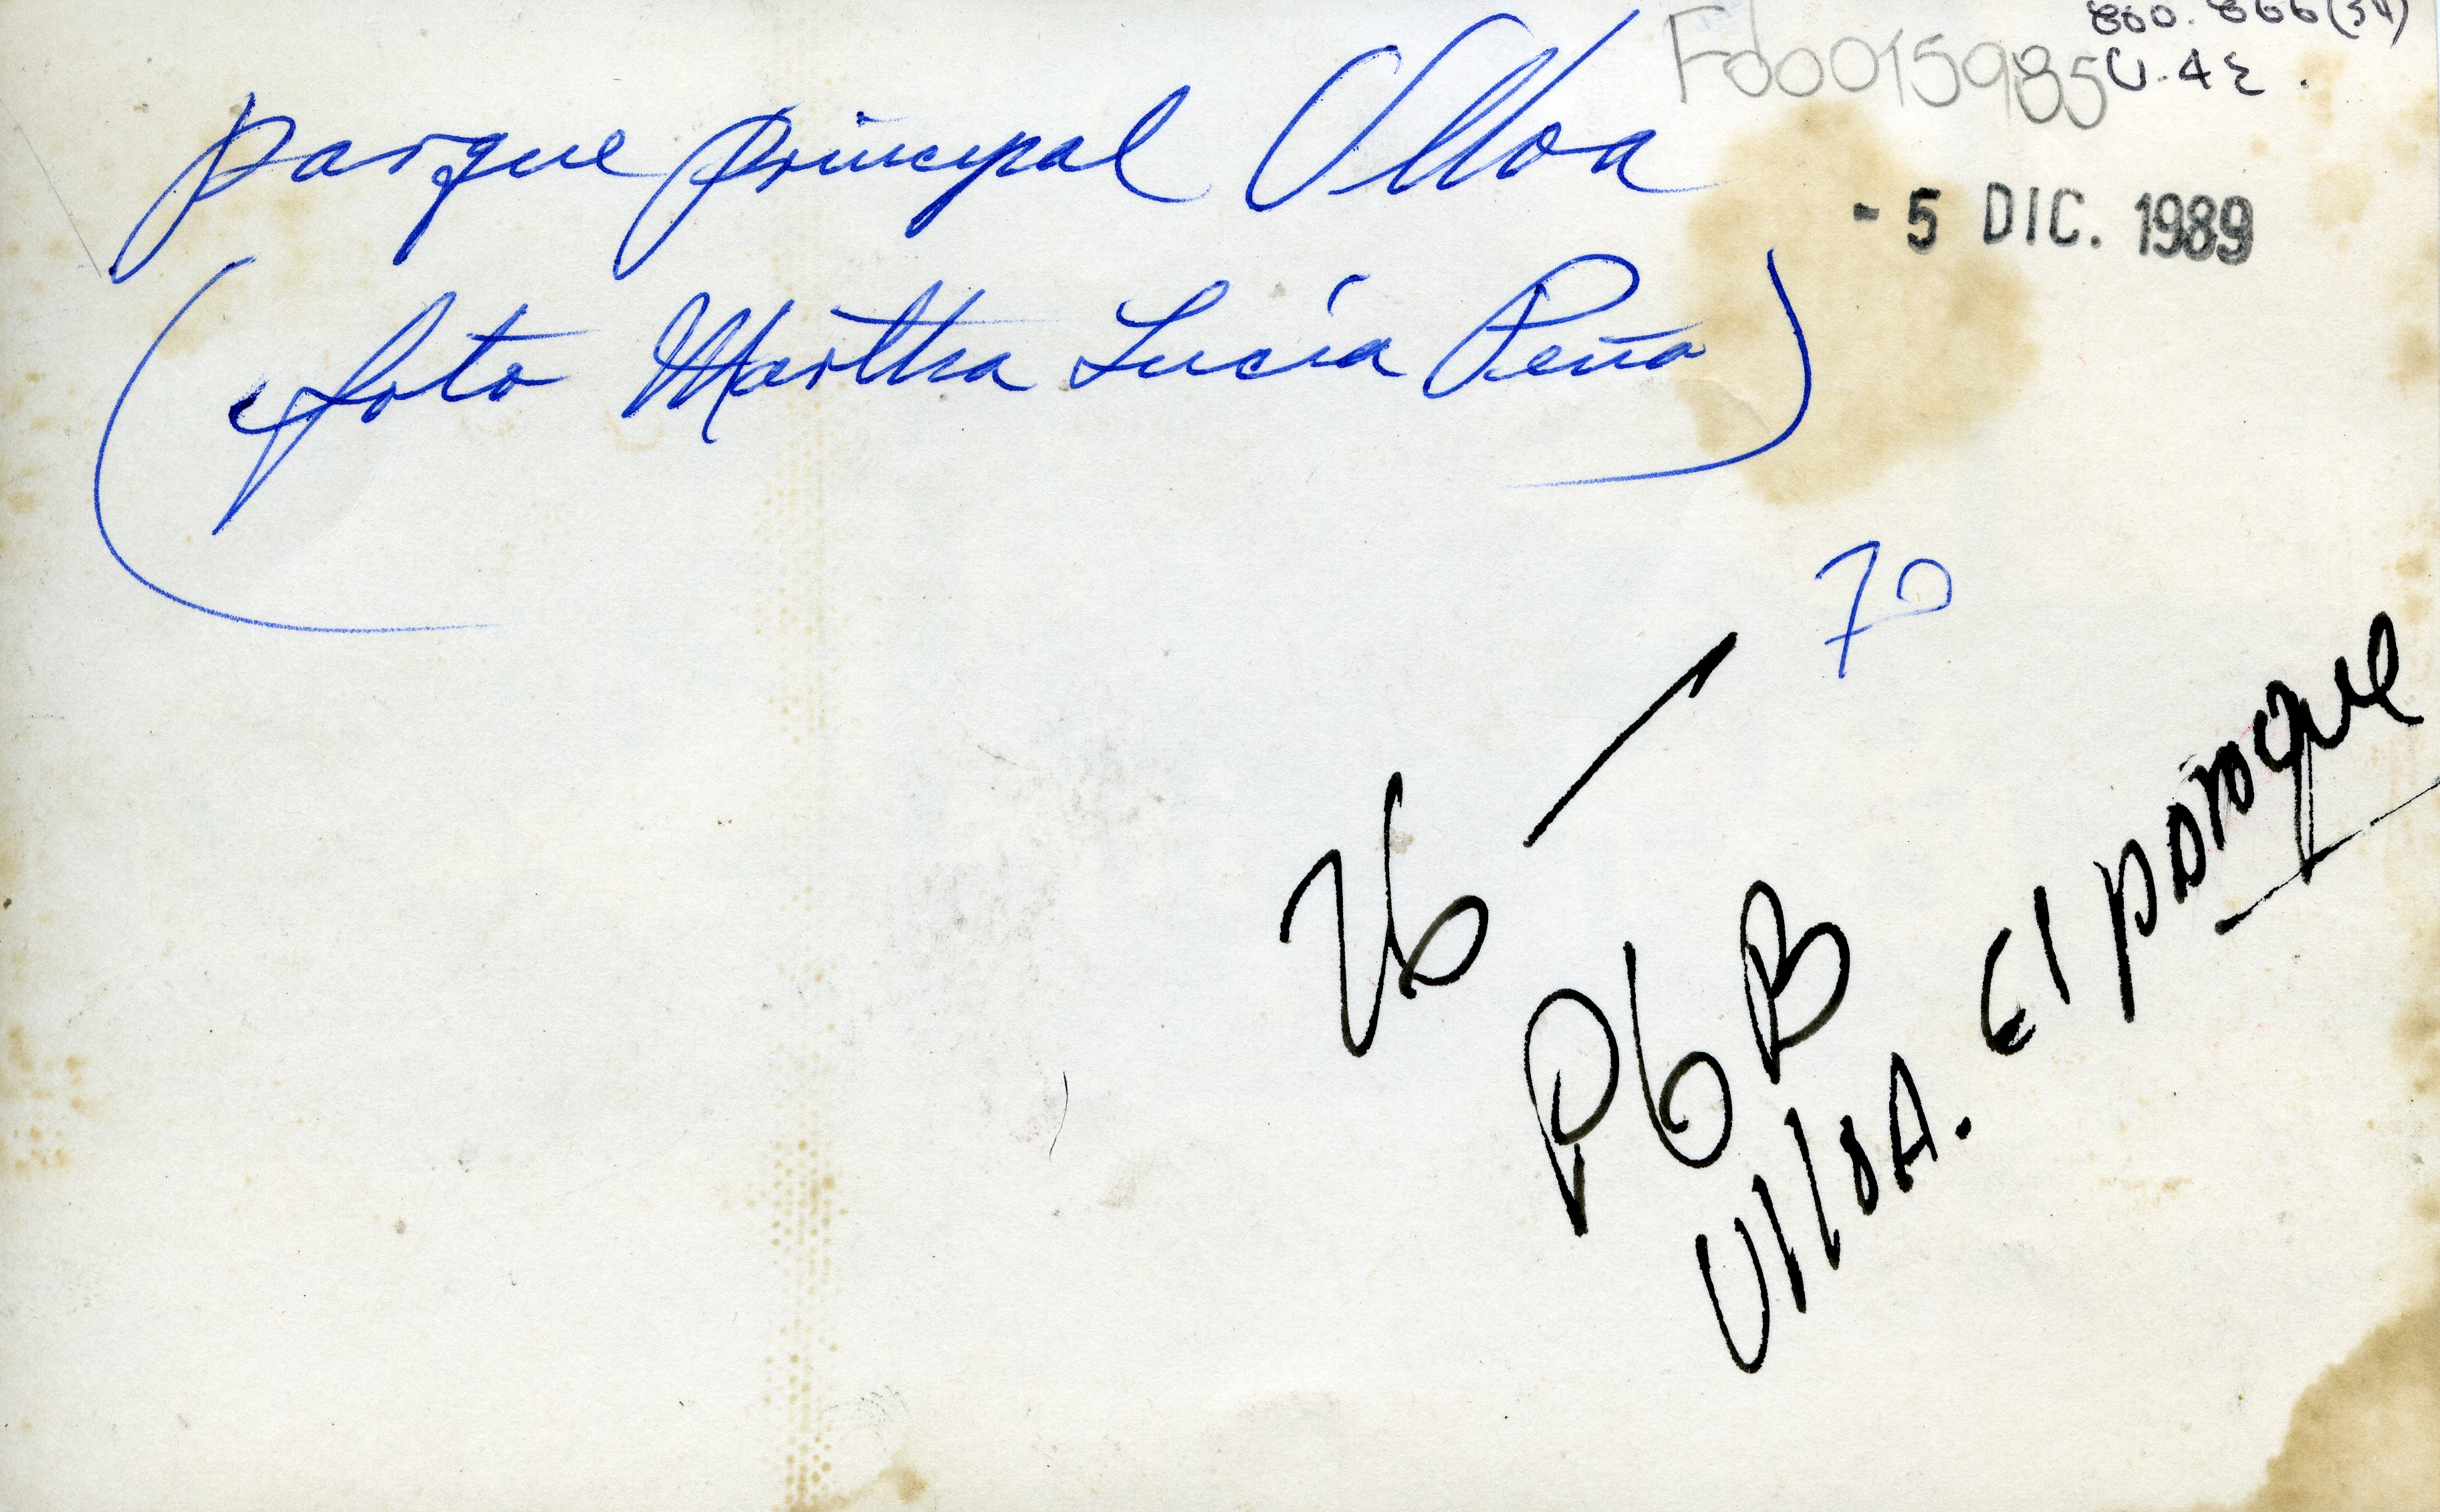 860.866(34)
U.4E.
Fd0015985
parque principal Ulloa
- 5 DIC. 1989
(foto Martha Lucía Peña)
70
26 —
P6B
UlloA. El parque